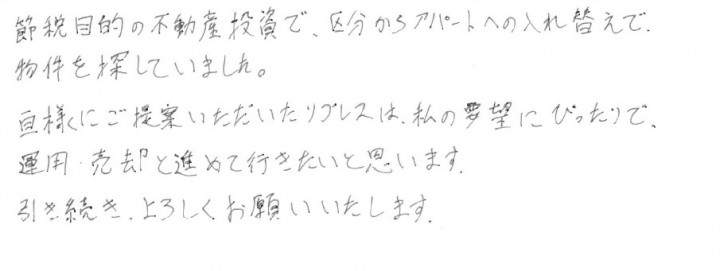 節税目的の不動産投資で、区分からアパートへの入れ替えで、
物件を探していました。
亘様にご提案いただいたリブレスは、私の要望にぴったりで、
運用・売却と進めて行きたいと思います。
引き続き、よろしくお願いいたします。